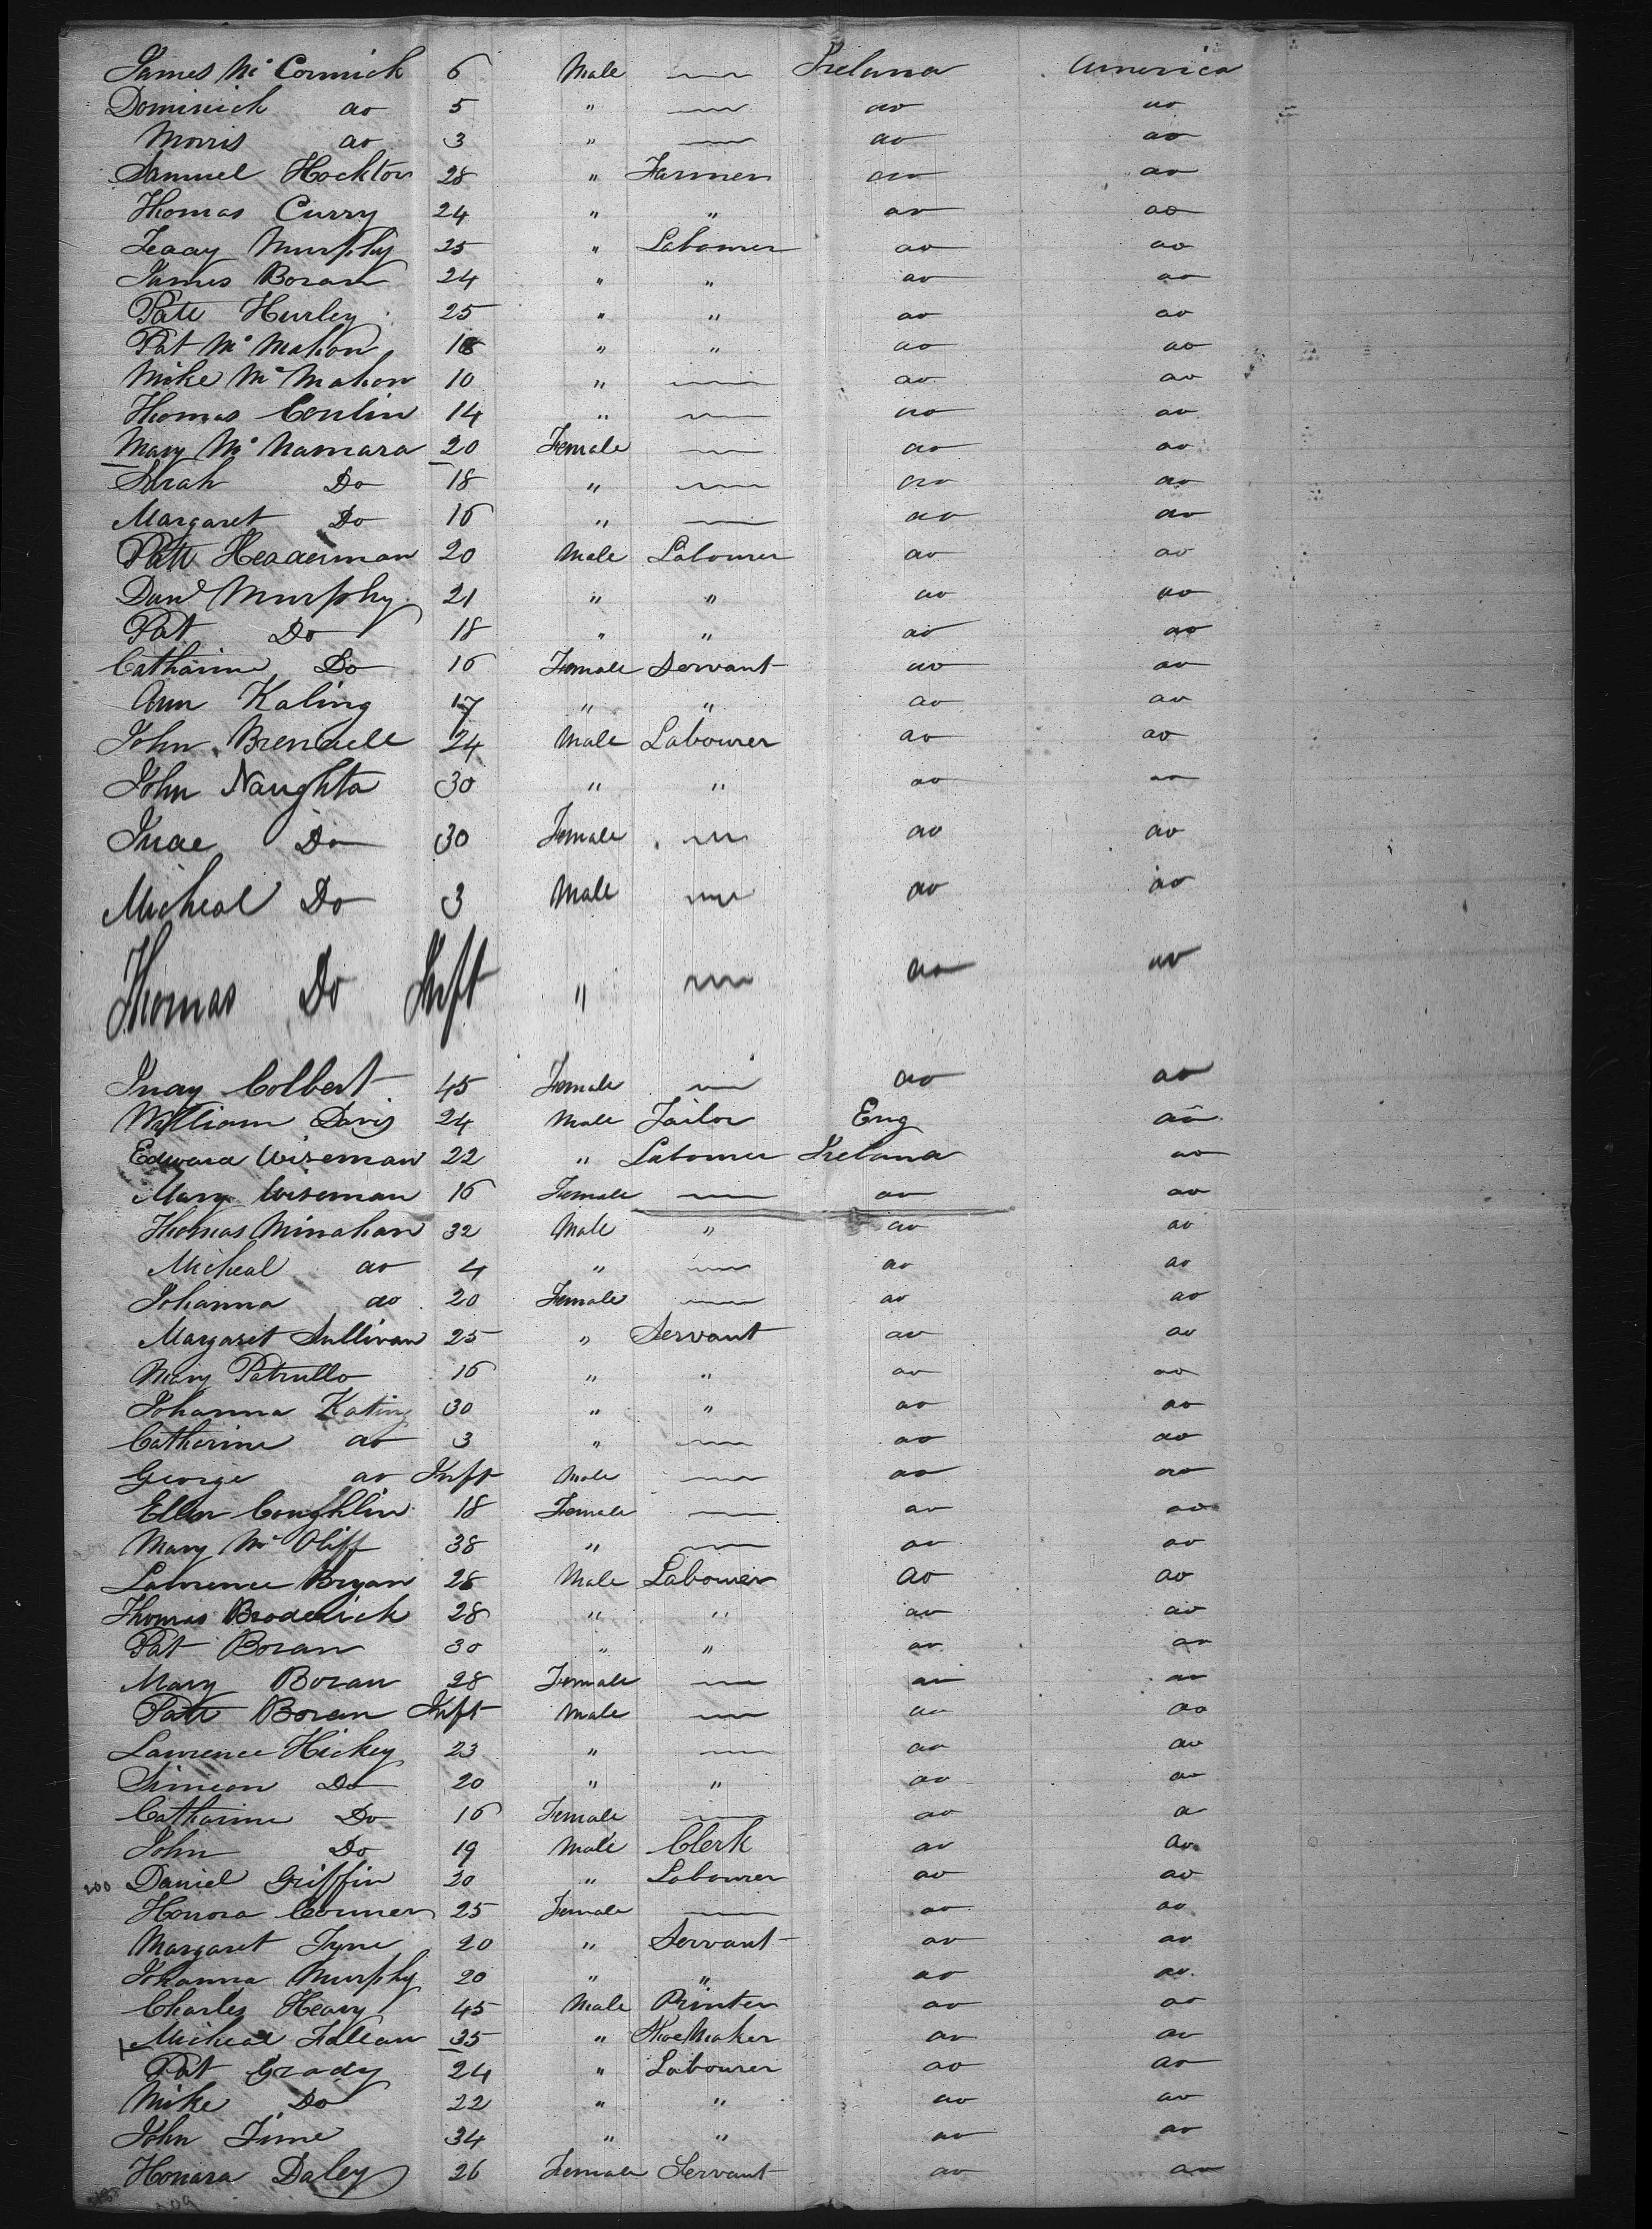 James Mc Cormick 6 Male — Ireland America
Dominick do 5 " — do do
Morris do 3 " — do do
Samuel Hockton 28 " Farmer do do
Thomas Curry 24 " " do do
Murphy 25 " Labourer do do
James Boran 24 " " do do
Patt Hurley 25 " " do do
Pat Mc Mahon 18 " " do do
Mike Mc Mahon 10 " — do do
Thomas Conlin 14 " — do do
Mary Mc Namara 20 Female — do do
Sarah Do 18 " — do do
Margaret Do 16 " — do do
Patt Hedderman 20 Male Labourer do do
Danl Murphy 21 " " do do
Pat Do 18 " " do do
Catharine Do 16 Female Servant do do
Ann Kaling 17 " " do do
John Brendell 24 Male Labourer do do
John Naughta 30 " " do do
Do 30 Female — do do
Micheal Do 3 Male — do do
Thomas Do Inft " — do do
Colbert 45 Female — do do
William Davis 24 Male Tailor Eng do
Edward Wiseman 22 " Labourer Ireland do
Mary Wiseman 16 Female — do do
Thomas Minahan 32 Male " do do
Micheal do 4 " — do do
Johanna do 20 Female — do do
Margaret Sullivan 25 " Servant do do
Mary Patrullo 16 " " do do
Johanna Kating 30 " " do do
Catherine do 3 " — do do
George do Inft Male — do do
Ellen Coughlin 18 Female — do do
Mary Mc Oliff 38 " — do do
Lawrence Bryan 28 Male Labourer do do
Thomas Broderick 28 " " do do
Pat Boran 30 " " do do
Mary Boran 28 Female — do do
Patt Boran Inft Male — do do
Lawrence Hickey 23 " — do do
Simeon Do 20 " " do do
Catharine Do 16 Female — do do
John Do 19 Male Clerk do do
200 Daniel Griffin 20 " Labourer do do
Honora Conner 25 Female — do do
Margaret Tyne 20 " Servant do do
Johanna Murphy 20 " " do do
Charles Heavy 45 Male Printer do do
Micheal Fallan 35 " Shoe Maker do do
Pat Grady 24 " Labourer do do
Mike Do 22 " " do do
John Time 34 " " do do
Honara Daley 26 Female Servant do do
209